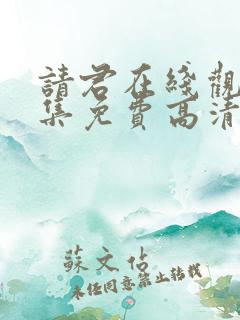 請君在綫觀
集免費高清
蘇文佔
未经同意禁止转载